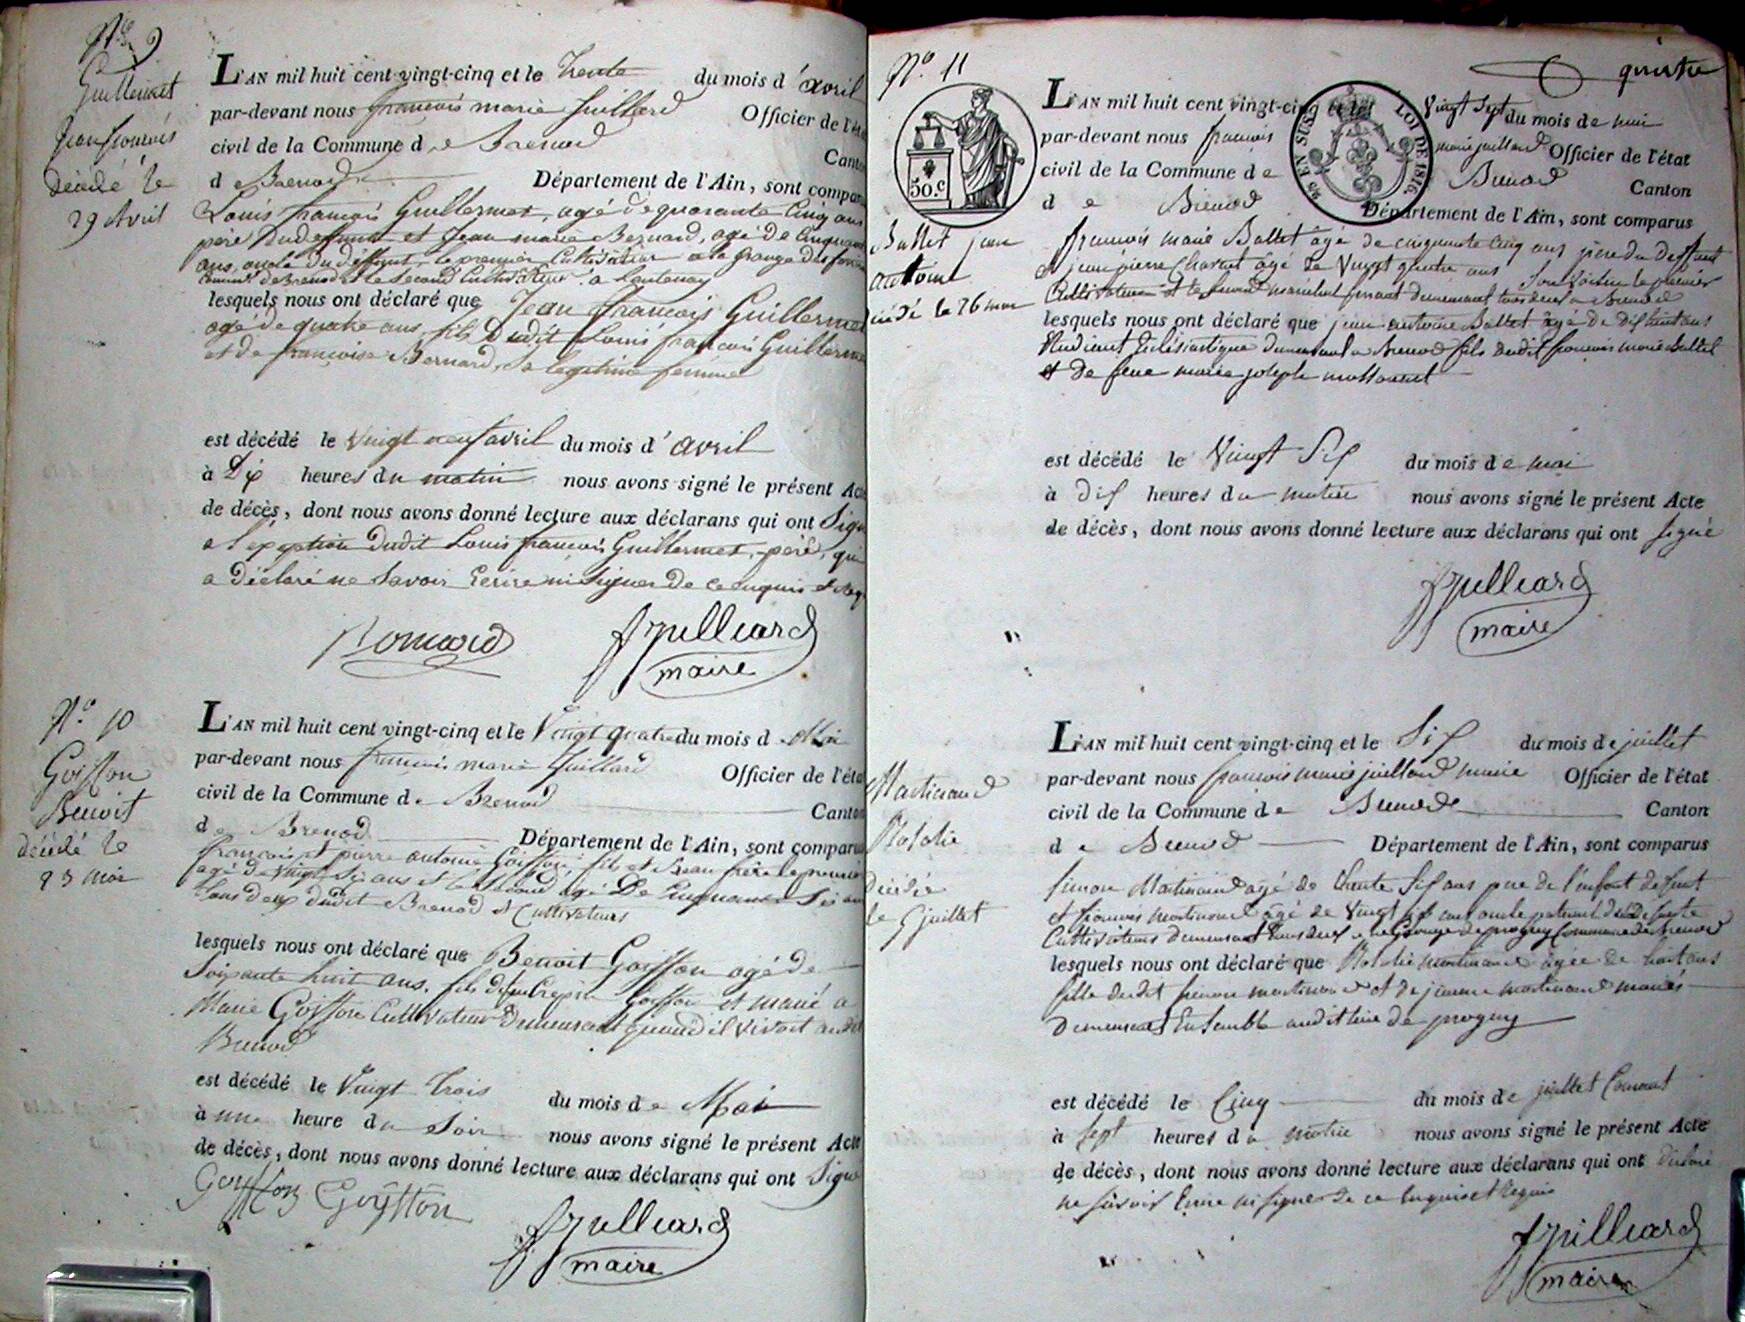 N.º 9
Guillermet
Jean françois
décédé le
29 Avril
L'AN mil huit cent vingt-cinq et le trente du mois d'avril
par-devant nous françois marie Juillard Officier de l'éta
civil de la Commune de Brenod Canton
de Brenod Département de l'Ain, sont compar
Louis françois Guillermet, agé de quarante Cinq ans
père dudeffunt et Jean marie Bernard, agé de Cinquante
ans, oncle du deffunt, le premier Cultivateur a la Grange
Commune de Brenod et le second Cultivateur a Lantenay
lesquels nous ont déclaré que Jean françois Guillermet
agé de quatre ans, fils Dudit Louis françois Guillermet
et de françoise Bernard, sa légitime femme
est décédé le vingt neuf avril du mois d'avril
à Dix heures du matin nous avons signé le présent Acte
de décès, dont nous avons donné lecture aux déclarans qui ont Signé
a l'exeption dudit Louis françois Guillermet, père, qui
a déclaré ne Savoir Ecrire ni Signer de ce enquis et Req
fJuilliard
maire
N.º 10
Goiffon
Benoit
décédé le
23 mai
L'AN mil huit cent vingt-cinq et le Vingt quatre du mois de Mai
par-devant nous françois marie Juillard Officier de l'éta
civil de la Commune de Brenod Canton
de Brenod Département de l'Ain, sont comparu
françois et pierre antoine Goiffon, fils et Beau frère le premier
agé de vingt six ans et le Second agé De Cinquante Six ans
tous deux dudit Brenod et Cultivateurs
lesquels nous ont déclaré que Benoit Goiffon agé de
Soixante huit ans, fils de feu Crepin Goiffon et marié a
Marie Goiffon Cultivateur Demeurant quand il vivoit audit
Brenod
est décédé le Vingt trois du mois de Mai
à une heure du Soir nous avons signé le présent Acte
de décès, dont nous avons donné lecture aux déclarans qui ont Signé
Goiffon Goyffon
fJuilliard
maire
quatre
N.º 11
50.c
EN SUS LOI DE 1816
Ballet jean
antoine
décédé le 26 mai
L'AN mil huit cent vingt-cinq et le Vingt Sept du mois de mai
par-devant nous françois marie juillard Officier de l'état
civil de la Commune de Brenod Canton
de Brenod Département de l'Ain, sont comparus
françois marie Ballet âgé de cinquante cinq ans père du deffunt
et jean pierre Charvet âgé de Vingt quatre ans Son Voisin le premier
Cultivateur et le Second maréchal ferrant demeurant tous deux a Brenod
lesquels nous ont déclaré que jean antoine Ballet âgé de dix huit ans
Etudiant Eclésiastique Demeurant a Brenod fils dudit françois marie Ballet
et de feue marie joseph
est décédé le Vingt Six du mois de mai
à dix heures du matin nous avons signé le présent Acte
de décès, dont nous avons donné lecture aux déclarans qui ont signé
fJuilliard
maire
Martinand
Rosalie
Décédée
le 5 juillet
L'AN mil huit cent vingt-cinq et le Six du mois de juillet
par-devant nous françois marie juillard maire Officier de l'état
civil de la Commune de Brenod Canton
de Brenod Département de l'Ain, sont comparus
Simon Martinand agé de trente Six ans père de l'enfant defunt
et françois martinand âgé de Vingt ans oncle paternel
Cultivateurs demeurant tous deux a la Grange de progny Commune de Brenod
lesquels nous ont déclaré que Rosalie martinand âgée de huit ans
fille dudit Simon martinand et de jeanne martinand mariés
Demeurant Ensemble audit lieu de progny
est décédé le Cinq du mois de juillet Courant
à sept heures du matin nous avons signé le présent Acte
de décès, dont nous avons donné lecture aux déclarans qui ont déclaré
ne savoir Ecrire ni signer de ce enquis et Requis
fJuilliard
maire